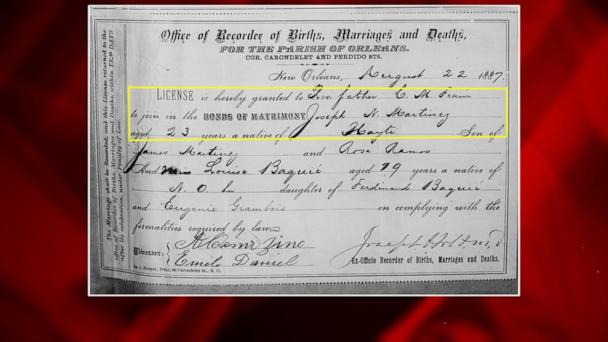 Office of Recorder of Births, Marriages and Deaths,
FOR THE PARISH OF ORLEANS.
COR. CARONDELET AND PERDIDO STS.
New Orleans, August 22 1887.
LICENSE is hereby granted to Rev. father C. M. Frain
to join in the BONDS OF MATRIMONY Joseph N. Martinez
aged 23 years a native of Hayti Son of
James Martinez and Rosa Ramos
And Miss Louise Baquie aged 19 years a native of
N. O. La daughter of Ferdinand Baquie
and Eugenie Grambois on complying with the
formalities required by law.
Witnesses:
Emile Daniel
Joseph Holt M.D
Ex-Officio Recorder of Births, Marriages and Deaths.
The Marriage shall be Recorded, and this License returned to the
Office of Births, Marriages and Deaths, within TEN DAYS
after its celebration, under Penalty of Law.